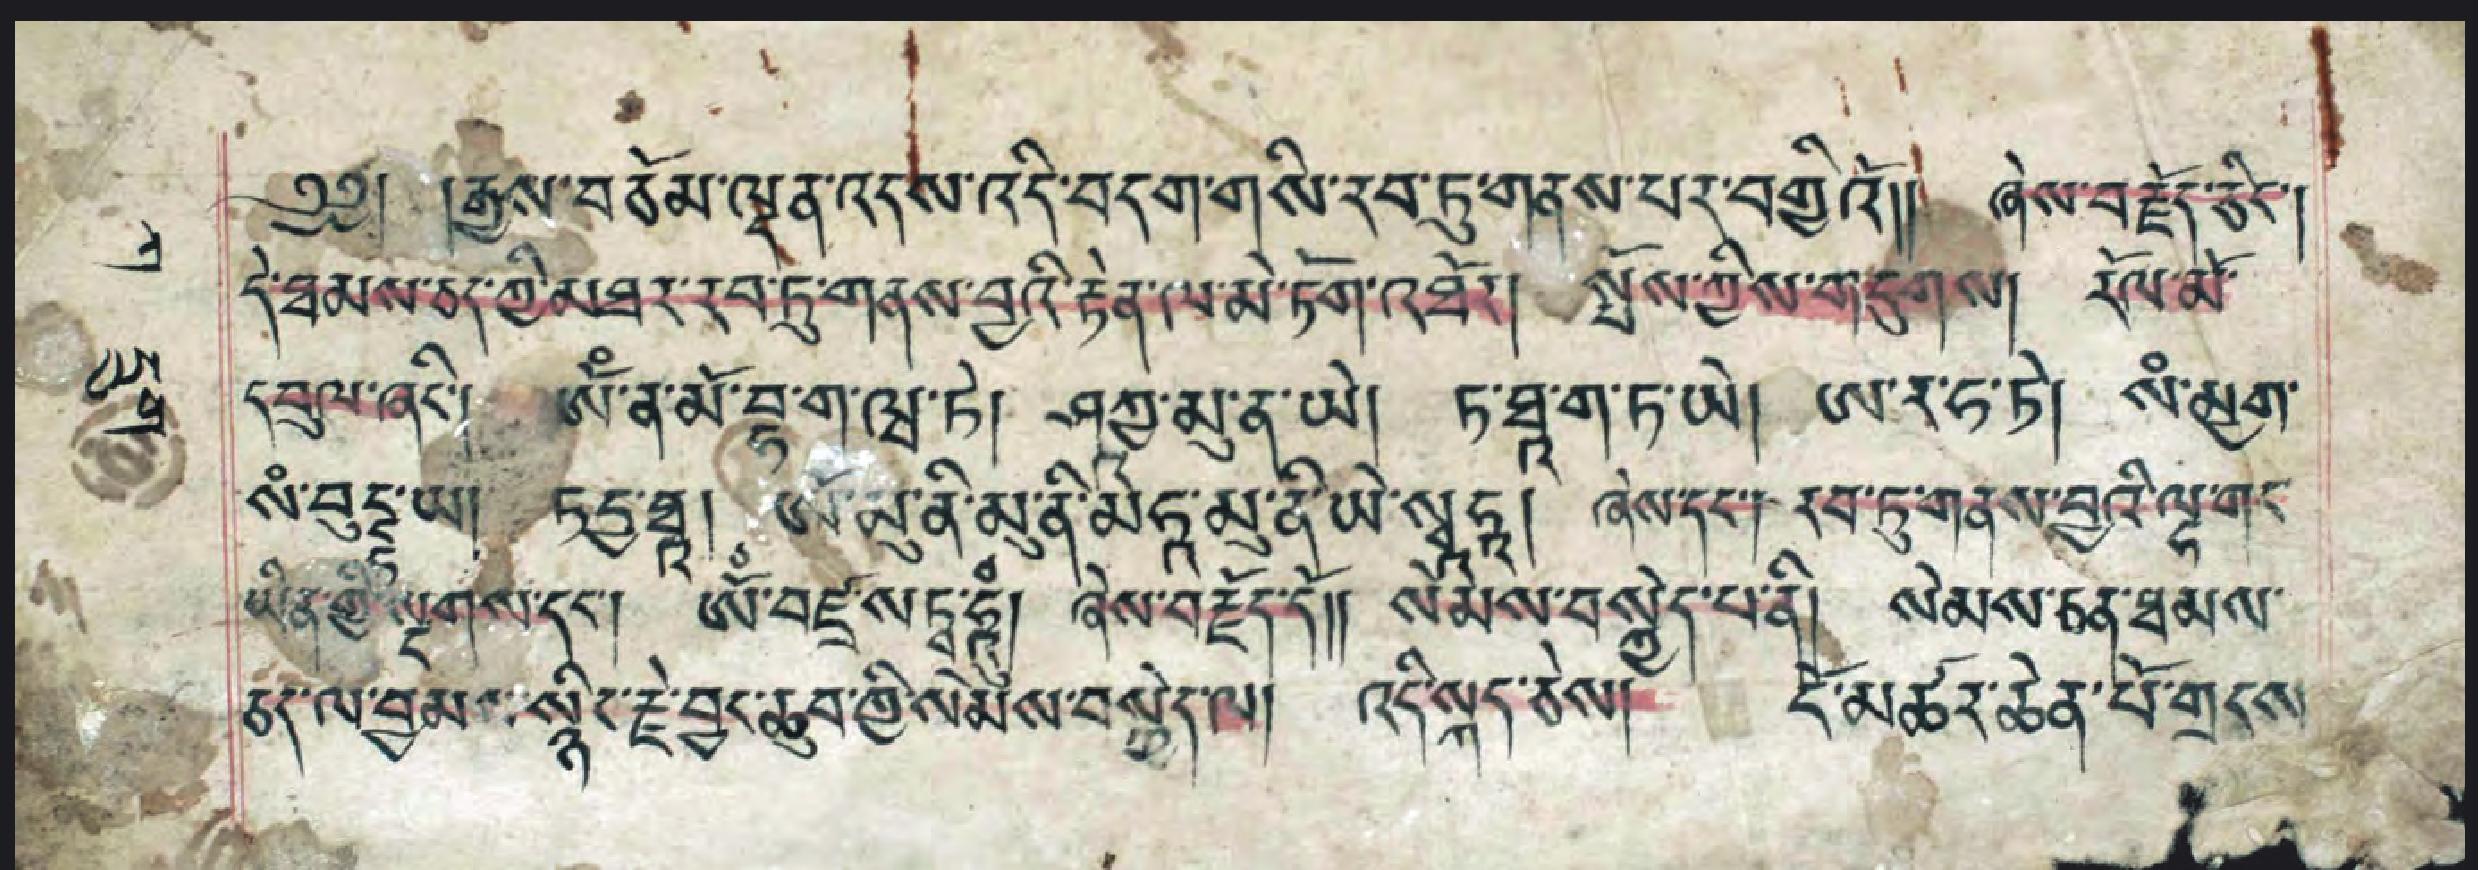 ༄༅། །རྒྱལ་བ་ཅོམ་ལྡན་འདས་འདི་བདག་གསི་རབ་ཏུ་གནས་པར་བགྱིའོ།། ཞེས་བརྗོད་ཅིང་།
དེ་ཐམས་ཅད་ཀྱི་མཐར་རབ་ཏུ་གནས་བྱའི་རྟེན་ལ་མེ་ཏོག་འཐོར། སྤོས་ཀྱིས་གདུགས། རོལ་མོ་
དཀྲུལ་ཞིང་། ཨོཾ་ན་མོ་བྷ་ག་ཝ་ཏེ། ཤཀྱ་མུ་ན་ཡེ། ཏ་ཐཱ་ག་ཏ་ཡེ། ཨ་ར་ཧ་ཏེ། སཾ་མྱག་
སཾ་བུདྡྷ་ཡ། ཏདྱ་ཐཱ། ཨོཾ་མུ་ནི་མུ་ནི་མེ་ཧཱ་མུ་ནི་ཡེ་སྭཱ་ཧཱ། ཞེས་དང་། རབ་ཏུ་གནས་བྱའི་ལྷ་གང་
ཡིན་གྱི་སྔགས་དང་། ཨོཾ་བཛྲ་ས་ཏྭ་ཧཱུཾ། ཞེས་བརྗོད་དོ།། སེམས་བསྐྱེད་པ་ནི། སེམས་ཅན་ཐམས་
ཅད་ལ་བྱམས་སྙིང་རྗེ་བྱང་ཆུབ་ཀྱི་སེམས་བསྐྱེད་ལ། འདི་སྐད་ཅེས། ངོ་མཚར་ཆེན་པོ་གྲངས